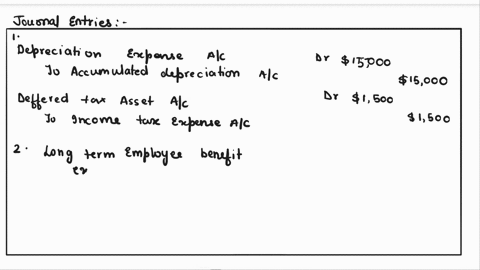 Journal Entries:-
1.
Depreciation Expense A/c Dr $15,000
To Accumulated depreciation A/c $15,000
Deffered tax Asset A/c Dr $1,500
To Income tax Expense A/c $1,500
2. Long term Employee benefit
ex